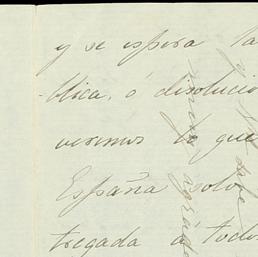 y se espera la
blica, ó disolució
veremos lo que
España solo
tregada a todo